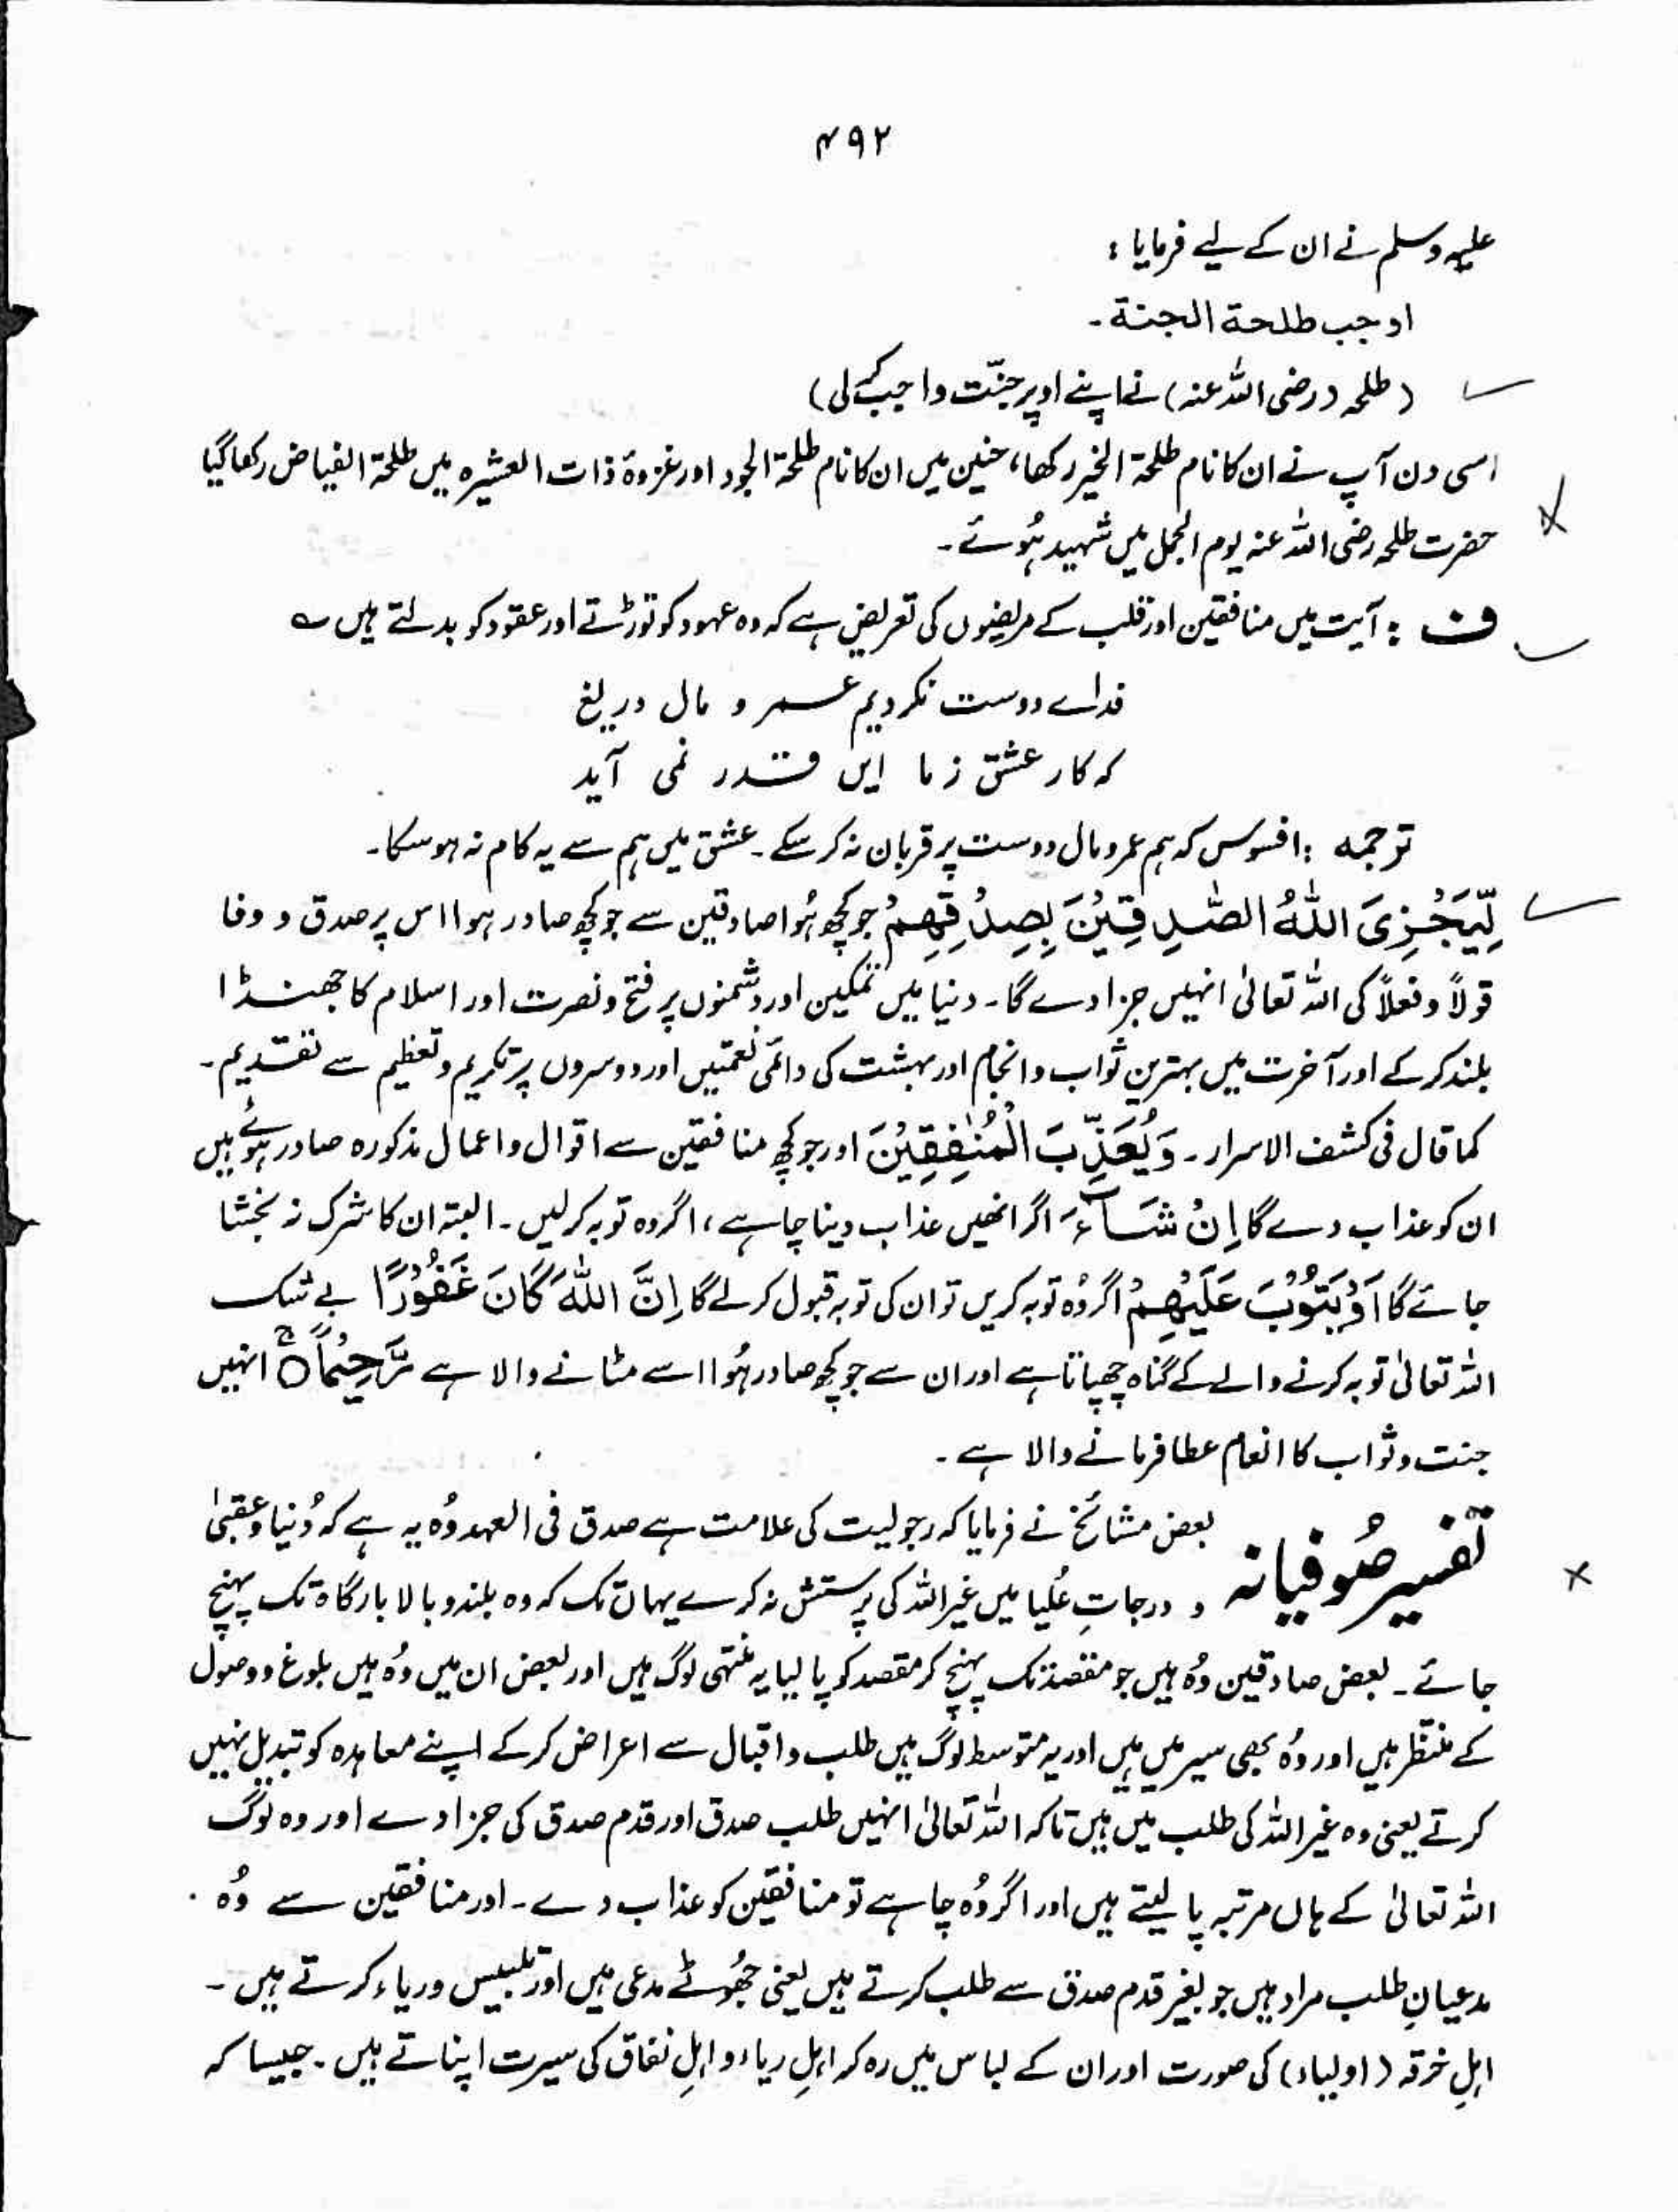 ۴۹۲
علیہ وسلم نے ان کے لیے فرمایا :
اوجب طلحة الجنة ۔
( طلحہ (رضی اللہ عنہ) نے اپنے اوپر جنّت واجب کر لی )
اسی دن آپ نے ان کا نام طلحۃ الخیر رکھا، حنین میں ان کا نام طلحۃ الجود اور غزوۂ ذات العشیرہ میں طلحۃ الفیاض رکھا گیا
حضرت طلحہ رضی اللہ عنہ یوم الجمل میں شہید ہُوئے ۔
ف : آیت میں منافقین اور قلب کے مریضوں کی تعریض ہے کہ وہ عہود کو توڑتے اور عقود کو بدلتے ہیں ؎
فدائے دوست نکردیم عمر و مال دریغ
کہ کار عشق ز ما ایں قدر نمی آید
ترجمہ : افسوس کہ ہم عمر و مال دوست پر قربان نہ کر سکے ۔ عشق میں ہم سے یہ کام نہ ہو سکا ۔
لِّيَجْزِيَ اللّٰهُ الصّٰدِقِيْنَ بِصِدْقِهِمْ جو کچھ ہُوا صادقین سے جو کچھ صادر ہوا اس پر صدق و وفا
قولاً و فعلاً کی اللہ تعالیٰ انہیں جزا دے گا ۔ دنیا میں تمکین اور دشمنوں پر فتح و نصرت اور اسلام کا جھنڈا
بلند کر کے اور آخرت میں بہترین ثواب و انجام اور بہشت کی دائمی نعمتیں اور دوسروں پر تکریم و تعظیم سے تقدیم ۔
کما قال فی کشف الاسرار ۔ وَيُعَذِّبَ الْمُنٰفِقِيْنَ اور جو کچھ منافقین سے اقوال و اعمال مذکورہ صادر ہوئے ہیں
ان کو عذاب دے گا اِنْ شَآءَ اگر انھیں عذاب دینا چاہے ، اگر وہ توبہ کر لیں ۔ البتہ ان کا شرک نہ بخشا
جائے گا اَوْ يَتُوْبَ عَلَيْهِمْ اگر وُہ توبہ کریں تو ان کی توبہ قبول کر لے گا اِنَّ اللّٰهَ كَانَ غَفُوْرًا بے شک
اللہ تعالیٰ توبہ کرنے والے کے گناہ چھپاتا ہے اور ان سے جو کچھ صادر ہُوا اسے مٹانے والا ہے رَّحِيْمًا ۝ انہیں
جنت و ثواب کا انعام عطا فرمانے والا ہے ۔
تفسیر صُوفیانہ بعض مشائخ نے فرمایا کہ رجولیت کی علامت ہے صدق فی العہد وُہ یہ ہے کہ دُنیا و عقبیٰ
و درجاتِ عُلیا میں غیر اللہ کی پرستش نہ کرے یہاں تک کہ وہ بلند و بالا بارگاہ تک پہنچ
جائے ۔ بعض صادقین وُہ ہیں جو مقصد تک پہنچ کر مقصد کو پا لیا یہ منتہی لوگ ہیں اور بعض ان میں وُہ ہیں بلوغ و وصول
کے منتظر ہیں اور وُہ بھی سیر میں ہیں اور یہ متوسط لوگ ہیں طلب و اقبال سے اعراض کر کے اپنے معاہدہ کو تبدیل نہیں
کرتے یعنی وہ غیر اللہ کی طلب میں ہیں تاکہ اللہ تعالیٰ انہیں طلب صدق اور قدم صدق کی جزا دے اور وہ لوگ
اللہ تعالیٰ کے ہاں مرتبہ پا لیتے ہیں اور اگر وُہ چاہے تو منافقین کو عذاب دے ۔ اور منافقین سے وُہ
مدعیانِ طلب مراد ہیں جو بغیر قدم صدق سے طلب کرتے ہیں یعنی جُھوٹے مدعی ہیں اور تلبیس و ریاء کرتے ہیں ۔
اہلِ خرقہ ( اولیاء ) کی صورت اور ان کے لباس میں رہ کر اہلِ ریاء و اہلِ نفاق کی سیرت اپناتے ہیں ۔ جیسا کہ